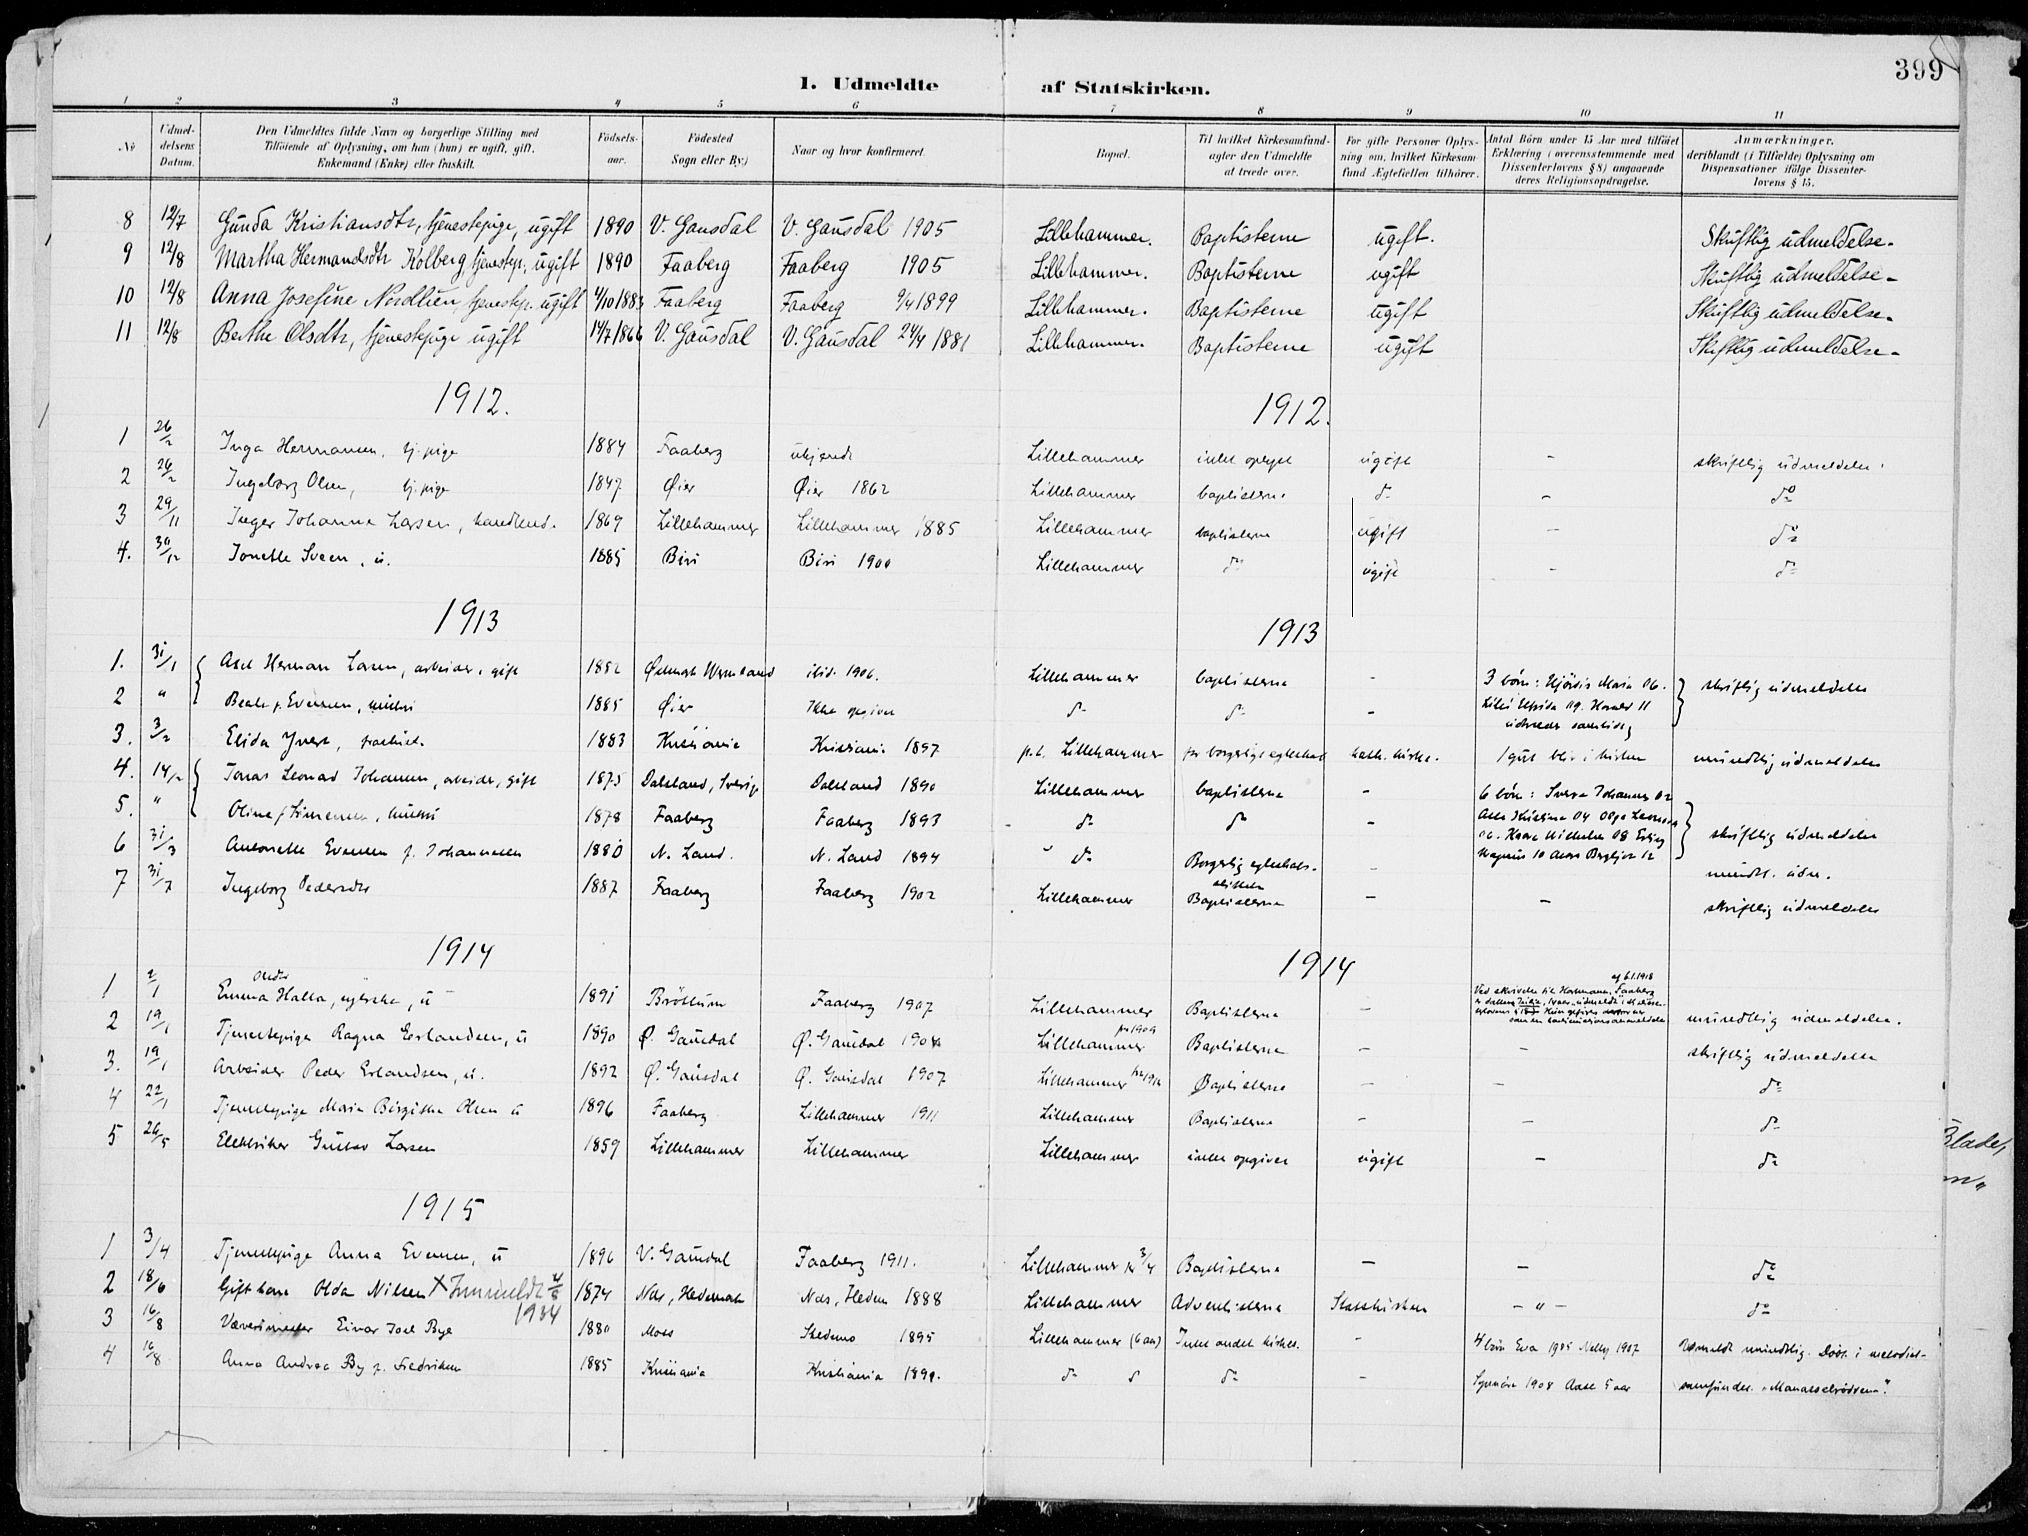 399
1. Udmeldte af Statskirken.
1 2 3 4 5 6 7 8 9 10 11
No Udmeldelsens Datum. Den Udmeldtes fulde Navn og borgerlige Stilling med Tilföiende af Oplysning, om han (hun) er ugift, gift, Enkemand (Enke) eller fraskilt. Födselsaar. Födested Sogn eller By) Naar og hvor konfirmeret. Bopæl. Til hvilket Kirkesamfund agter den Udmeldte at træde over. For gifte Personer Oplysning om, hvilket Kirkesamfund Ægtefællen tilhörer. Antal Börn under 15 Aar med tilföiet Erklæring (overensstemmende med Dissenterlovens § 8) angaaende deres Religionsopdragelse. Anmærkninger, deriblandt (i Tilfælde) Oplysning om Dispensationer ifölge Dissenterlovens § 15.
8 12/7 Gunda Kristiansdtr, tjenestepige, ugift 1890 V. Gausdal V. Gausdal 1905 Lillehammer. Baptisterne ugift. Skriftlig udmeldelse.
9 12/8 Martha Hermandsdtr Kolberg, tjenestep., ugift 1890 Faaberg Faaberg 1905 Lillehammer. Baptisterne ugift Skriftlig udmeldelse.
10 12/8 Anna Josefine Nordlien, tjenestep. ugift 4/10 1883 Faaberg Faaberg 9/4 1899 Lillehammer. Baptisterne ugift Skriftlig udmeldelse.
11 12/8 Berthe Olsdtr, tjenestepige ugift 14/7 1866 V. Gausdal V. Gausdal 24/4 1881 Lillehammer. Baptisterne ugift Skriftlig udmeldelse.
1912. 1912.
1 26/2 Inga Hermansen, tj.pige 1884 Faaberg ukjendt Lillehammer intet oplyst ugift - skriftlig udmeldelse.
2 26/2 Ingeborg Olsen, tj.pige 1847 Øier Øier 1862 Lillehammer baptisterne do - do
3 29/11 Inger Johanne Larsen, handlend. 1869 Lillehammer Lillehammer 1885 Lillehammer baptisterne ugift - do
4. 30/12 Jonette Sveen, u. 1885 Biri Biri 1900 Lillehammer do ugift - do
1913 1913
1. 31/1 Axel Herman Larsen, arbeider, gift 1882 Ødmark Wermland ibid. 1906. Lillehammer baptisterne - 3 børn: Hjördis Maria 06. skriftlig udmeldelse
2 " Beate f. Evensen, hustru 1885 Øier Ikke opgivet do do - Lilli Elfrida 09. Harald 11
udtræder samtidig
3. 3/2 Elida 1883 Kristiania Kristiania 1897 p.t. Lillehammer for borgerligt egteskab kath. kirke. 1 gut blir i kirken mundtlig udmeldelse
4. 14/2 Jonas Leonard Johansen, arbeider, gift 1875 Dalsland, Sverige Dalsland 1890 Lillehammer baptisterne - 6 børn: Sverre Johannes 02
5. " Oline f. Simensen, hustru 1878 Faaberg Faaberg 1893 do do - Kristine 04 Olga
6 31/3 Antonette Evensen f. Johannesen 1880 N. Land. N. Land 1894 " do Borgerlig egteskabs- - 06. Kaare Wilhelm 08 Erling skriftlig udmeldelse
Magnus 10 Bergljot 12 mundt. udm.
7 31/7 Ingeborg Pedersdtr 1887 Faaberg Faaberg 1902 Lillehammer Baptisterne - - skriftlig udmeldelse
1914 1914
1 2/1 Emma Olsdtr Halla, sypike, u 1891 Brøttum Faaberg 1907 Lillehammer Baptisterne - mundtlig udmeldelse.
af 6.1.1918
2 19/1 Tjenestepige Ragna Erlandsen, u 1890 Ø. Gausdal Ø. Gausdal 1904 Lillehammer fra 1909 Baptisterne - - skriftlig udmeldelse
3. 19/1 Arbeider Peder Erlandsen, u. 1892 Ø. Gausdal Ø. Gausdal 1907 Lillehammer fra 1912 Baptisterne - - do
4 22/1 Tjenestepige Maria Birgitte Olsen u 1896 Faaberg Lillehammer 1911 Lillehammer Baptisterne - - do
5 26/5 Elektriker Gustav Larsen 1859 Lillehammer Lillehammer Lillehammer intet opgivet ugift - do
1915
1 3/4 Tjenestepige Anna Evensen, u 1896 V. Gausdal Faaberg 1911. Lillehammer 3/4 Baptisterne - - do
2 18/6 Gift kone Olda Nilsen X Innmeldt 4/8 1934 1874 Nes, Hedemark Nes, Hedem 1888 Lillehammer Adventisterne Statskirken - " - do
3 16/8 Vævermester Einar Joel Bye 1880 Moss Skedsmo 1895 Lillehammer (6 aar) Intet andet kirkes. - 4 børn Eva 1905 Nelly 1907 Udmeldt mundtlig. Døbt i metodist-
4 16/8 Anna Andrea By f. Fredriksen 1885 Kristiania Kristiania 1899. do do do - 1908 Aase 5 aar samfundet.